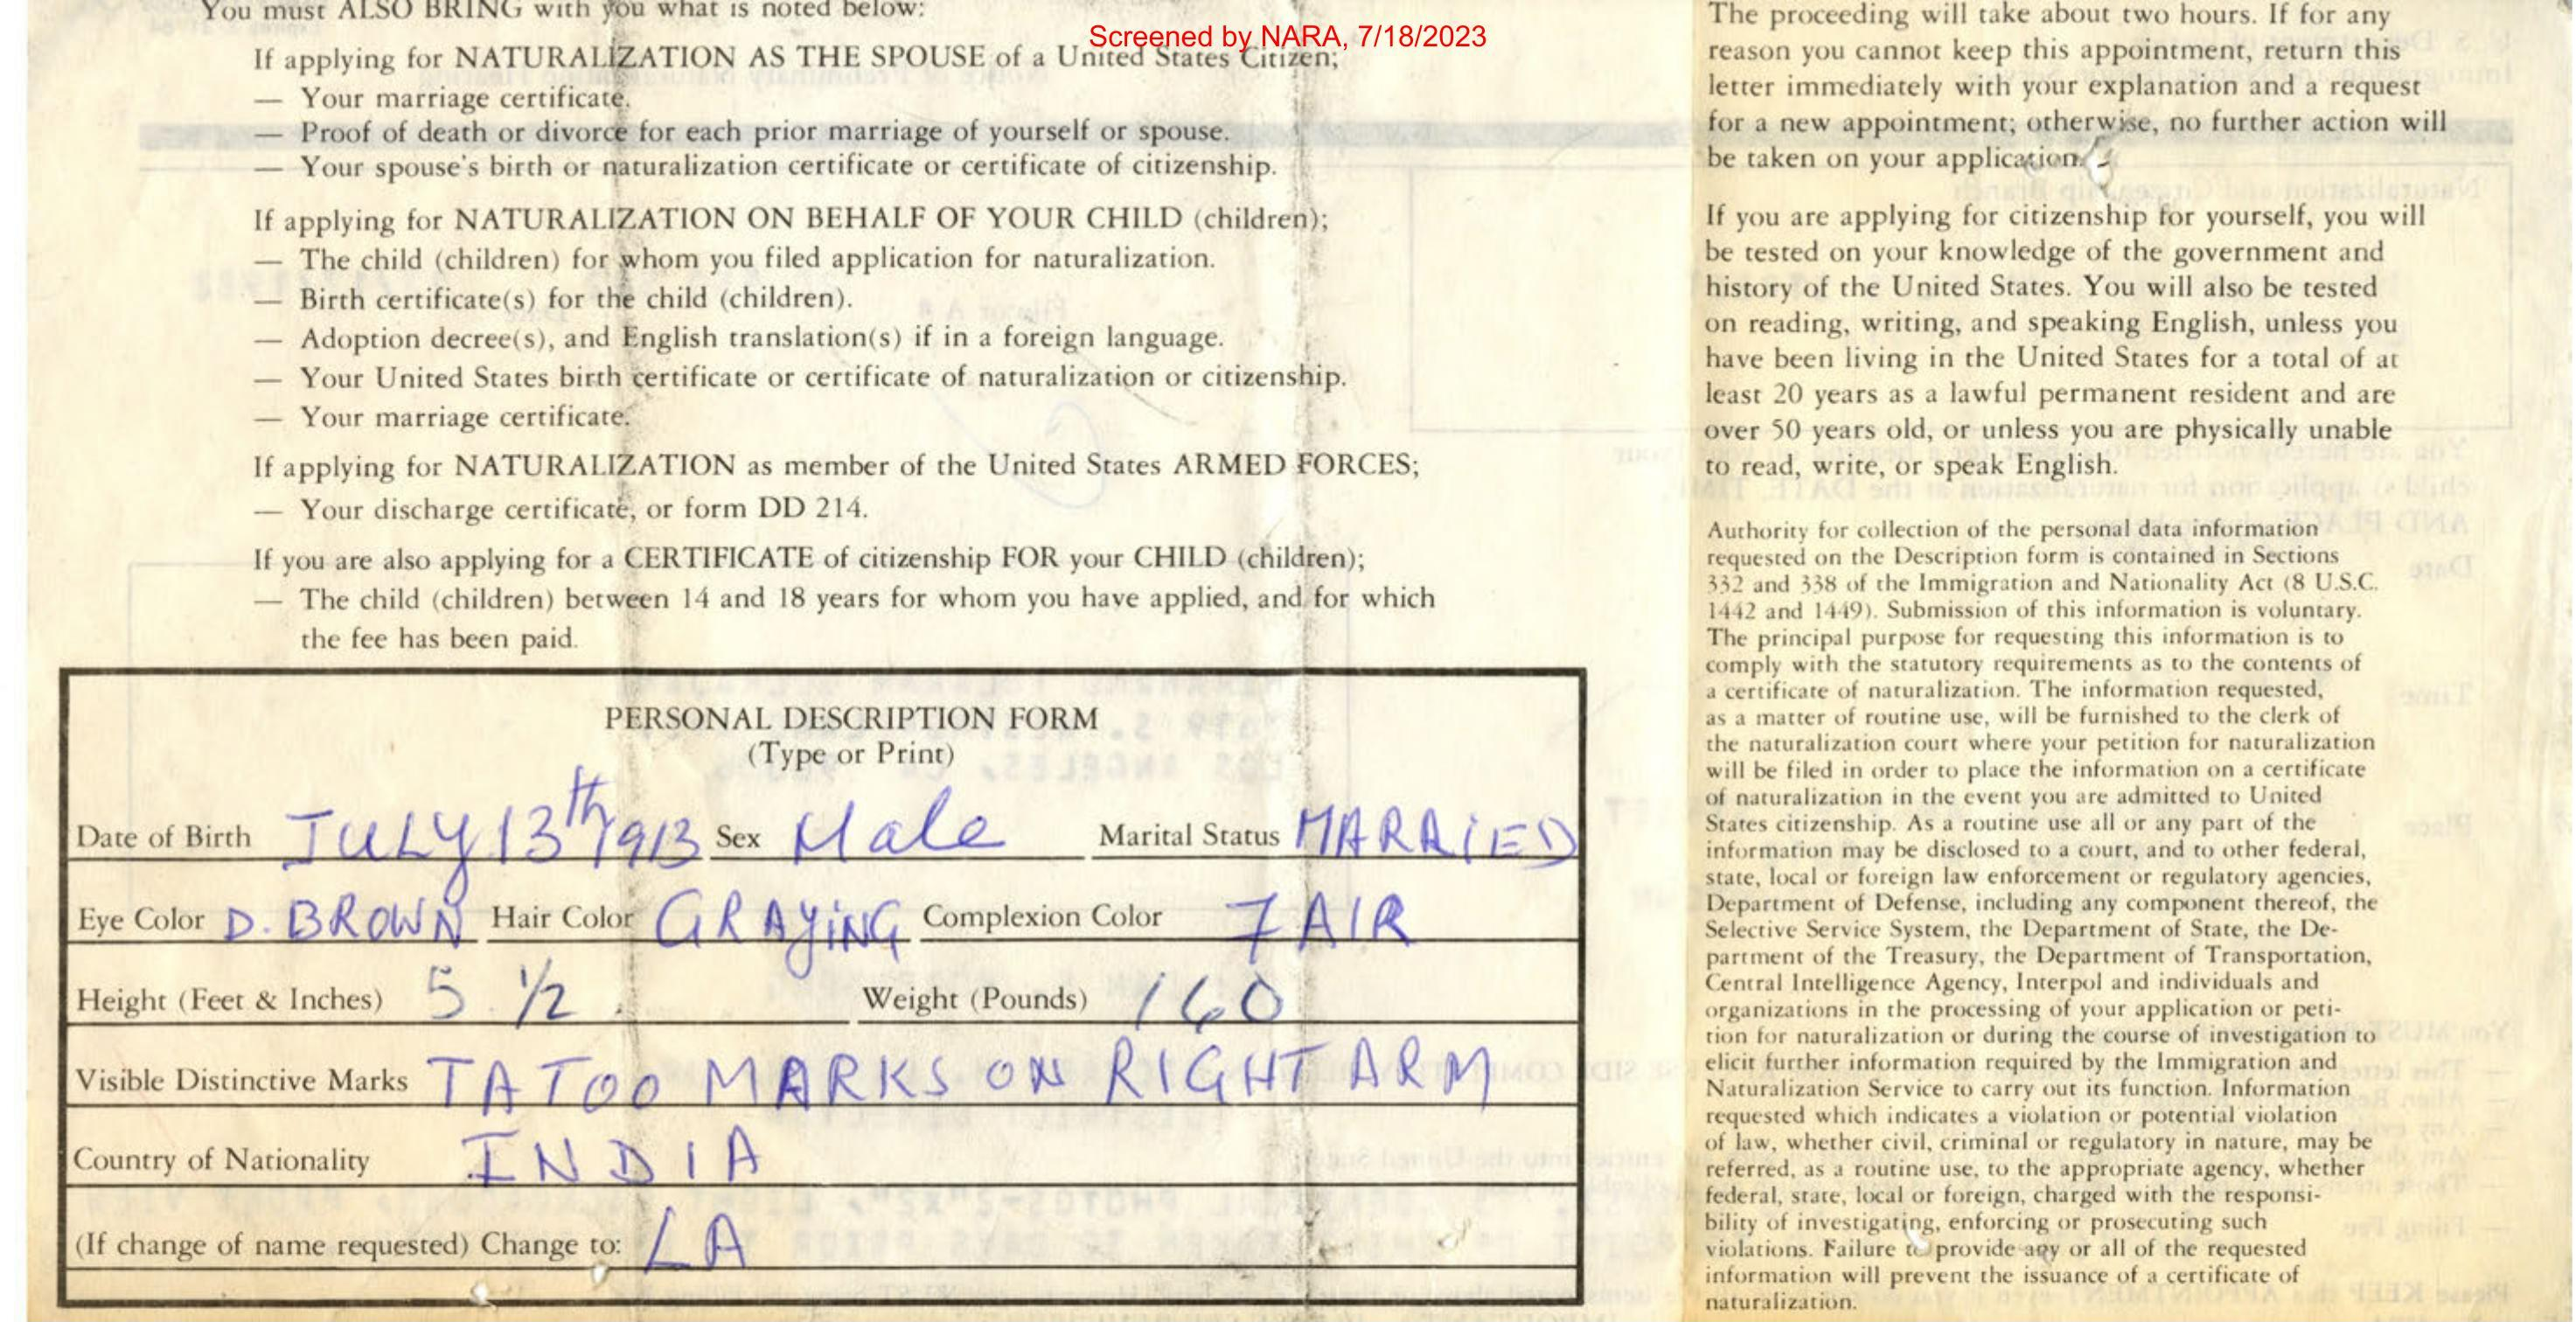 You must ALSO BRING with you what is noted below:
Screened by NARA, 7/18/2023
If applying for NATURALIZATION AS THE SPOUSE of a United States Citizen;
— Your marriage certificate.
— Proof of death or divorce for each prior marriage of yourself or spouse.
— Your spouse's birth or naturalization certificate or certificate of citizenship.
If applying for NATURALIZATION ON BEHALF OF YOUR CHILD (children);
— The child (children) for whom you filed application for naturalization.
— Birth certificate(s) for the child (children).
— Adoption decree(s), and English translation(s) if in a foreign language.
— Your United States birth certificate or certificate of naturalization or citizenship.
— Your marriage certificate.
If applying for NATURALIZATION as member of the United States ARMED FORCES;
— Your discharge certificate, or form DD 214.
If you are also applying for a CERTIFICATE of citizenship FOR your CHILD (children);
— The child (children) between 14 and 18 years for whom you have applied, and for which
the fee has been paid.
PERSONAL DESCRIPTION FORM
(Type or Print)
Date of Birth JULY 13th 1913 Sex Male Marital Status MARRIED
Eye Color D. BROWN Hair Color GRAYING Complexion Color FAIR
Height (Feet & Inches) 5 1/2 Weight (Pounds) 160
Visible Distinctive Marks TATOO MARKS ON RIGHT ARM
Country of Nationality INDIA
(If change of name requested) Change to: LA
The proceeding will take about two hours. If for any
reason you cannot keep this appointment, return this
letter immediately with your explanation and a request
for a new appointment; otherwise, no further action will
be taken on your application.
If you are applying for citizenship for yourself, you will
be tested on your knowledge of the government and
history of the United States. You will also be tested
on reading, writing, and speaking English, unless you
have been living in the United States for a total of at
least 20 years as a lawful permanent resident and are
over 50 years old, or unless you are physically unable
to read, write, or speak English.
Authority for collection of the personal data information
requested on the Description form is contained in Sections
332 and 338 of the Immigration and Nationality Act (8 U.S.C.
1442 and 1449). Submission of this information is voluntary.
The principal purpose for requesting this information is to
comply with the statutory requirements as to the contents of
a certificate of naturalization. The information requested,
as a matter of routine use, will be furnished to the clerk of
the naturalization court where your petition for naturalization
will be filed in order to place the information on a certificate
of naturalization in the event you are admitted to United
States citizenship. As a routine use all or any part of the
information may be disclosed to a court, and to other federal,
state, local or foreign law enforcement or regulatory agencies,
Department of Defense, including any component thereof, the
Selective Service System, the Department of State, the De-
partment of the Treasury, the Department of Transportation,
Central Intelligence Agency, Interpol and individuals and
organizations in the processing of your application or peti-
tion for naturalization or during the course of investigation to
elicit further information required by the Immigration and
Naturalization Service to carry out its function. Information
requested which indicates a violation or potential violation
of law, whether civil, criminal or regulatory in nature, may be
referred, as a routine use, to the appropriate agency, whether
federal, state, local or foreign, charged with the responsi-
bility of investigating, enforcing or prosecuting such
violations. Failure to provide any or all of the requested
information will prevent the issuance of a certificate of
naturalization.